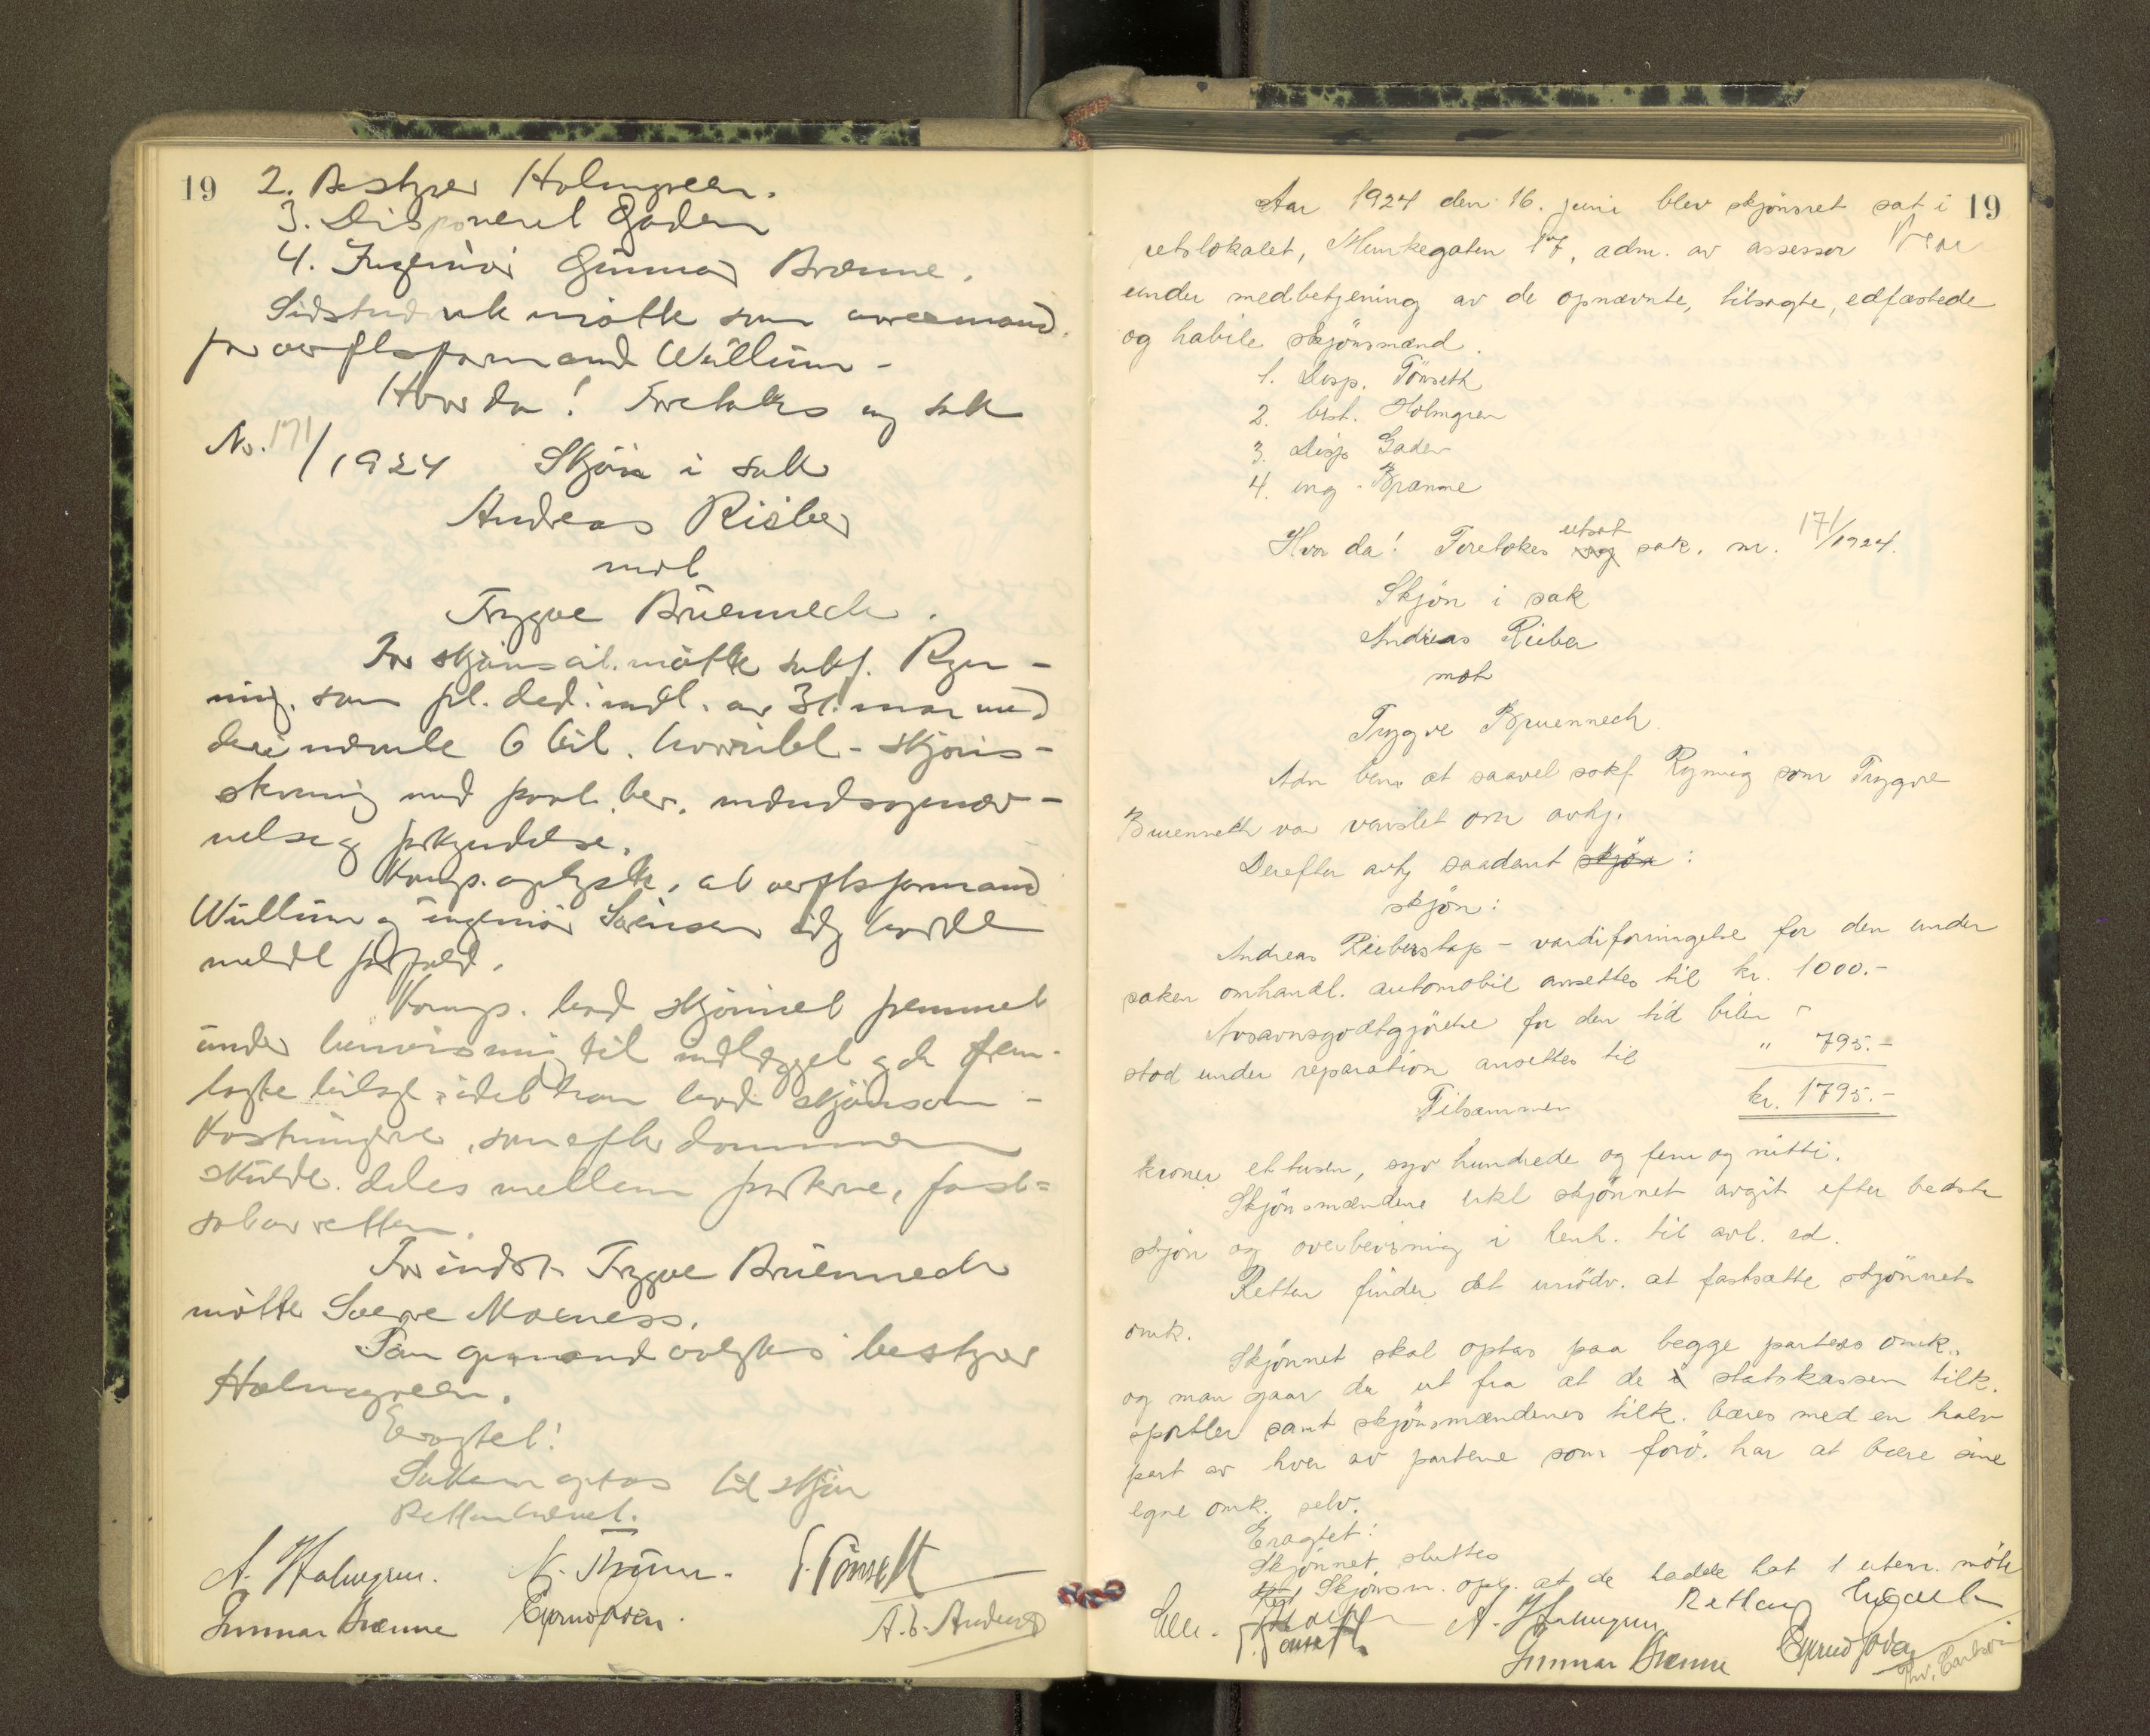 19
2. Bestyrer Holmgreen.
3. Disponent Gaden
4. Ingeniør Gunnar Brænne.
Sidstnævnte møtte som
for verftsformand Wullum -
Hvorda! Foretokes og sak
No. 171/1924 Skjøn i sak
Andreas Rieber
mot
Trygve Bruenech.
For skjøns møtte sakf. Ryn-
ning, som pl. ded. indl. av 31. mar med
deri nævnte 6 bil. skjøns-
med paat. ber. mændsopnæv-
nelse og forkyndelse.
Komp. oplyste, at verftsformand
Wullum og ingeniør hadde
meldt forfald.
Komp. bad skjønnet fremmet
under henvisning til indlægget og de frem-
lagte bilag, idet han bad skjønsom-
kostningene, som efter dommen
skulde deles mellem parterne, fast-
sat av retten.
For indst. Trygve Bruenech
møtte Sverre Moeness.
Til formand valgtes bestyrer
Holmgreen.
Eragtet!
Saken optas til skjøn
Retten hævet.
A. Holmgren. N. Thrane. Tönseth
Gunnar Brænne
19
Aar 1924 den 16. juni blev skjønsret sat i
retslokalet, Munkegaten 17, adm. av assessor
under medbetjening av de opnævnte, tilsagte, edfæstede
og habile skjønsmænd.
1. Disp. Tönseth
2. best. Holmgren
3. Disp Gaden
4. ing. Brænne
Hvor da! Foretokes utsat sak. nr. 171/1924.
Skjøn i sak
Andreas Rieber
mot
Trygve Bruennech.
Adm bem. at saavel sakf Rynning som Trygve
Bruennech var varslet om avhj.
Derefter avhj saadant skjøn:
skjøn:
Andreas Riebers tap - værdiforringelse for den under
saken omhandl. automobil ansettes til kr. 1000.-
Avsavnsgodtgjörelse for den tid bilen
stod under reparation ansettes til " 795.-
Tilsammen kr. 1795.-
kroner et tusen, syv hundrede og fem og nitti.
Skjønsmændene erkl skjønnet avgit efter bedste
skjøn og overbevisning i henh. til avl. ed.
Retten finder det unödv. at fastsætte skjönnets
omk.
Skjønnet skal optas paa begge parters omk.,
og man gaar da ut fra at de i statskassen tilk.
sportler samt skjønsmændenes tilk. bæres med en halv
part av hver av partene som forö. har at bære sine
egne omk. selv.
Eragtet!
Skjønnet sluttes
Skjønsm. oply. at de hadde hat 1 uten. möte
Retten hævet
Tönseth A. Holmgren
Gunnar Brænne